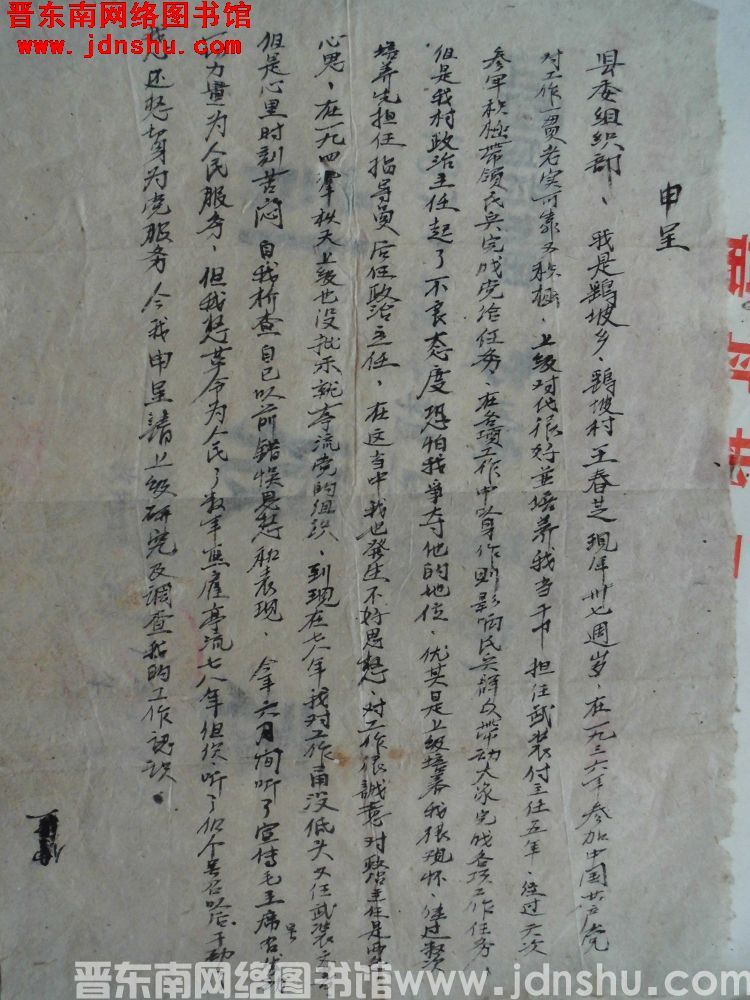 晋东南网络图书馆
www.jdnshu.com
申呈
县委组织部、我是鸦坡乡、鸦坡村王春芝现年卅七周岁、在一九三六年参加中国共产党
对工作一贯老实可靠又积极、上级对代很好并培养我当干部担任武装付主任五年、经过大次
参军积极带领民兵完成党给任务、在各项工作中以身作则影响民兵群众带动大家完成各项工作任务、
但是我村政治主任起了不良态度恐怕我争夺他的地位、优其是上级培养我很现怀、经过数次
培养先担任指导员后任政治主任、在这当中我也发生不好思想、对工作很诚意对政治主任是
心思、在一九四 年秋天上级也没批示就亭流党的组织、到现在七八年我对工作甭没低头又任武装
但是心里时刻苦闷自我析查自己以前错悮思想和表现、今年六月间听了宣传毛主席号召
力量为人民服务、但我想革命为人民了数年 亭流七八年但 听了 个号召以后干劲
我还想 身为党服务今我申呈请上级研究及调查我的工作认识。
晋东南网络图书馆 www.jdnshu.com